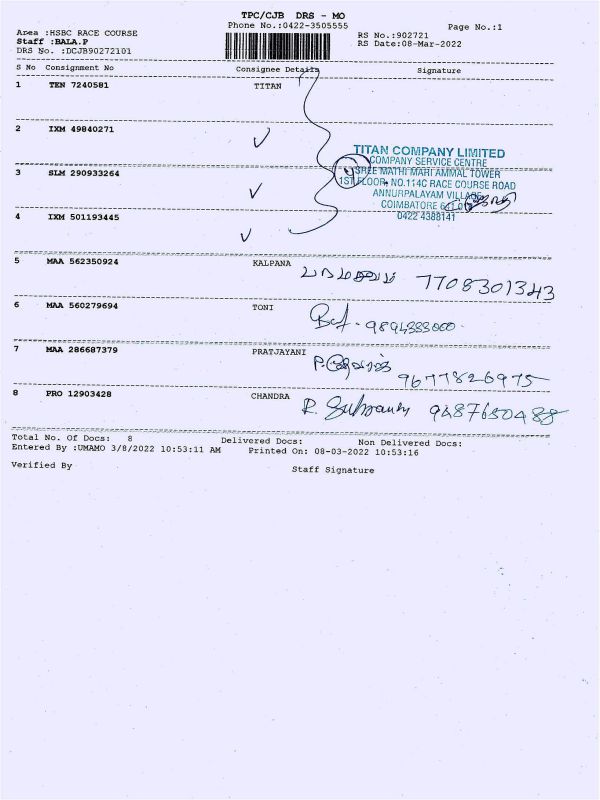 TPC/CJB DRS - MO
Phone No.:0422-3505555
Page No.:1
Area :HSBC RACE COURSE
Staff :BALA.P
DRS No. :DCJB90272101
RS No.:902721
RS Date:08-Mar-2022
S No Consignment No Consignee Details Signature
1 TEN 7240581 TITAN
2 IXM 49840271
3 SLM 290933264
4 IXM 501193445
4
TITAN COMPANY LIMITED
COMPANY SERVICE CENTRE
SREE MATHI MARI AMMAL TOWER
1ST FLOOR, NO.114C RACE COURSE ROAD
ANNURPALAYAM VILLAGE
COIMBATORE
0422 4388141
5 MAA 562350924 KALPANA 7708301343
6 MAA 560279694 TONI
7 MAA 286687379 PRATJAYANI 9677826975
8 PRO 12903428 CHANDRA R. 9487650488
Total No. Of Docs: 8 Delivered Docs: Non Delivered Docs:
Entered By :UMAMO 3/8/2022 10:53:11 AM Printed On: 08-03-2022 10:53:16
Verified By Staff Signature